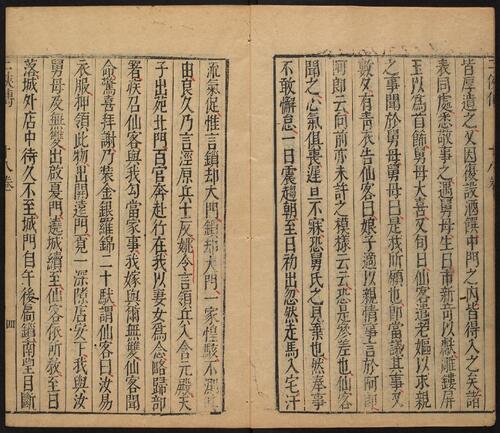 皆厚遺之又因復設酒饌中門之內皆得入之矣諸
表同處悉敬事之遇舅母生日市新奇以獻雕鏤犀
玉以為首飾舅母大喜又旬日仙客遣老嫗以求親
之事聞於舅母舅母曰是我所願也即當議其事又
數夕有青衣告仙客曰娘子適以親情事言於阿郎
阿郎云向前亦未許之模樣云云恐是參差也仙客
聞之心氣俱喪遲旦不寐恐舅氏之見棄也然奉事
不敢懈怠一日震趨朝至日初出忽然走馬入宅汗
流氣促惟言鎖却大門鎖却大門一家惶駭不測其
由良久乃言涇原兵士反姚令言領兵入含元殿天
子出苑北門百官奔赴行在我以妻女為念略歸部
署疾召仙客與我勾當家事我嫁與爾無雙仙客聞
命驚喜拜謝乃裝金銀羅錦二十馱謂仙客曰汝易
衣服押領此物出開遠門覓一深隙店安下我與汝
舅母及無雙出啟夏門遶城續至仙客依所教至日
落城外店中待久不至城門自午後扃鎖南望目斷